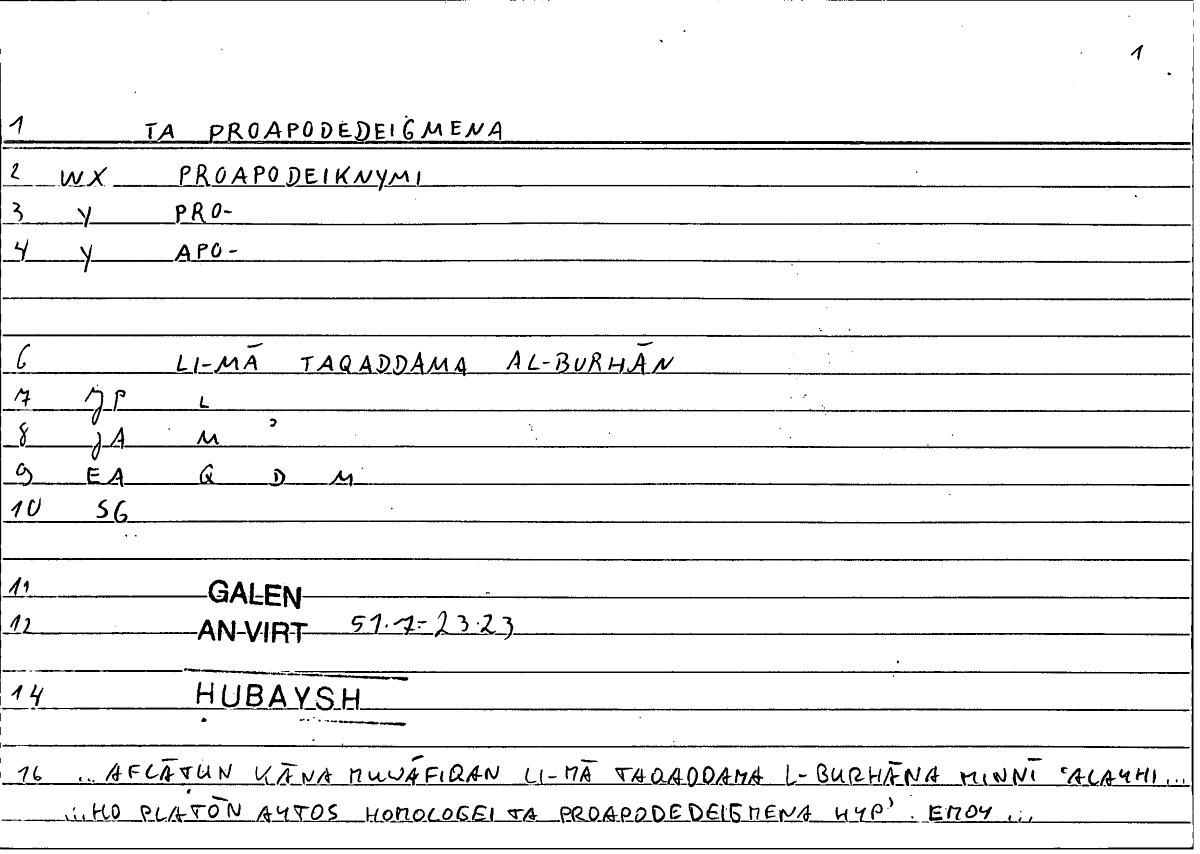 1
1 TA PROAPODEDEIGMENA
2 WX PROAPODEIKNYMI
3 Y PRO-
4 Y APO-
6 LI-MĀ TAQADDAMA AL-BURHĀN
7 JP L
8 JA M ʾ
9 EA Q D M
10 SG
11 GALEN
12 AN-VIRT 51.7-23.23
14 HUBAYSH
16 ... AFLĀṬUN KĀNA MUWĀFIQAN LI-MĀ TAQADDAMA L-BURHĀNA MINNĪ ʿALAYHI ...
... HO PLATŌN AYTOS HOMOLOGEI TA PROAPODEDEIGMENA HYP' EMOY ...